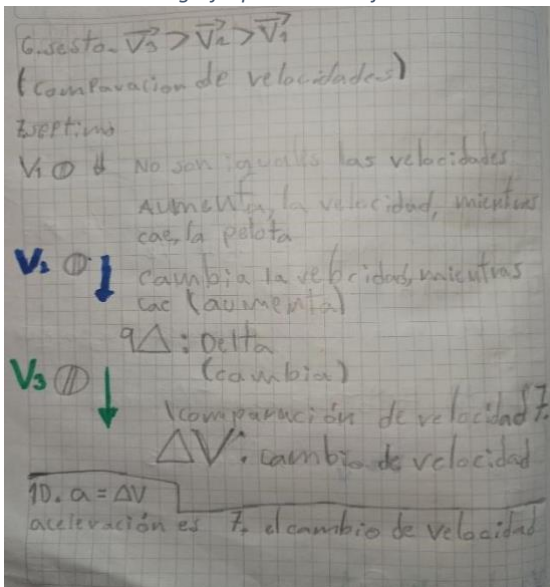 6. sesto. V3 > V2 > V1
(comparacion de velocidades)
7. septimo
V1 No son iguales las velocidades
Aumenta, la velocidad, mientras
cae, la pelota
V2 cambia la velocidad, mientras
cae (aumenta)
9 Δ: Delta
(cambia)
V3
(comparación de velocidad 7.
ΔV: cambio de velocidad
10. a = ΔV
aceleración es 7. el cambio de velocidad